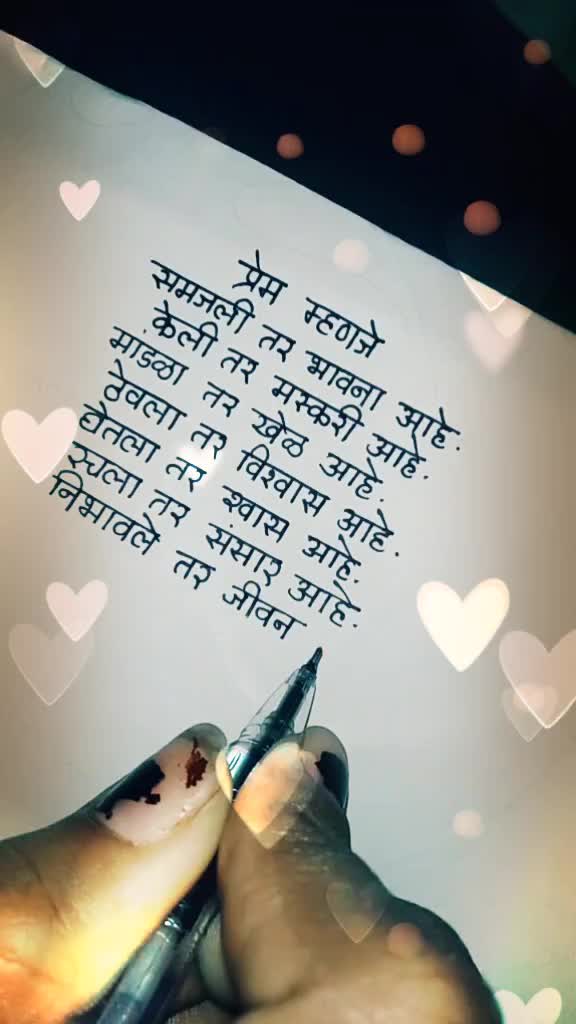 प्रेम म्हणजे
समजली तर भावना आहे.
केली तर मस्करी आहे.
मांडळा तर खेळ आहे.
ठेवला तर विश्वास आहे.
घेतला तर श्वास आहे.
रचला तर संसार आहे.
निभावले तर जीवन